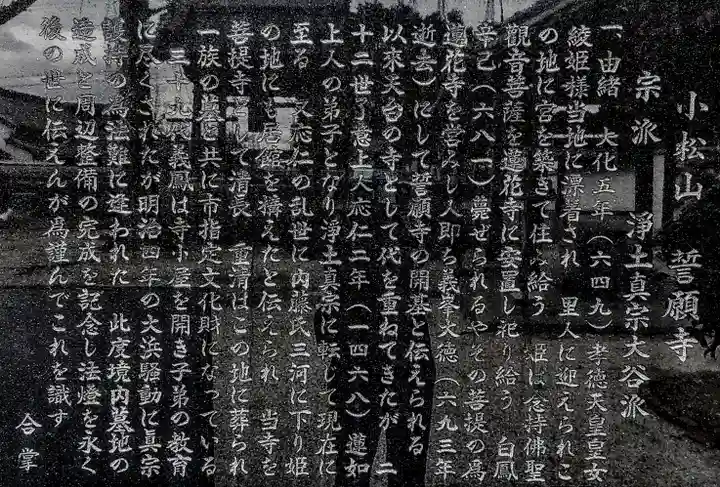 小松山 誓願寺
宗派 浄土真宗大谷派
一、由緒 大化五年（六四九）孝徳天皇皇女
綾姫様当地に漂着され 里人に迎えられこ
の地に宮を築きて住み給う 姫は念持佛聖
觀音菩薩を蓮花寺に安置し祀り給う 白鳳
辛己（六八一）薨ぜられるやその菩提の為
蓮花寺を営みし人即ち義峯大徳（六九三年
逝去）にして誓願寺の開基と伝えられる
以来天台の寺として代を重ねてきたが 二
十二世了意上人応仁二年（一四六八）蓮如
上人の弟子となり浄土真宗に転して現在に
至る 又応仁の乱世に内藤氏三河に下り姫
の地にも居館を構えたと伝えられ 当寺を
菩提寺として清長 重清はこの地に葬られ
一族の墓と共に市指定文化財になっている
三十九代義鳳は寺小屋を開き子弟の教育
に尽くされたが明治四年の大浜騒動に真宗
護持の為法難に逢われた 此度境内墓地の
造成と周辺整備の完成を記念し法燈を永く
後の世に伝えんが爲謹んでこれを識す
合掌